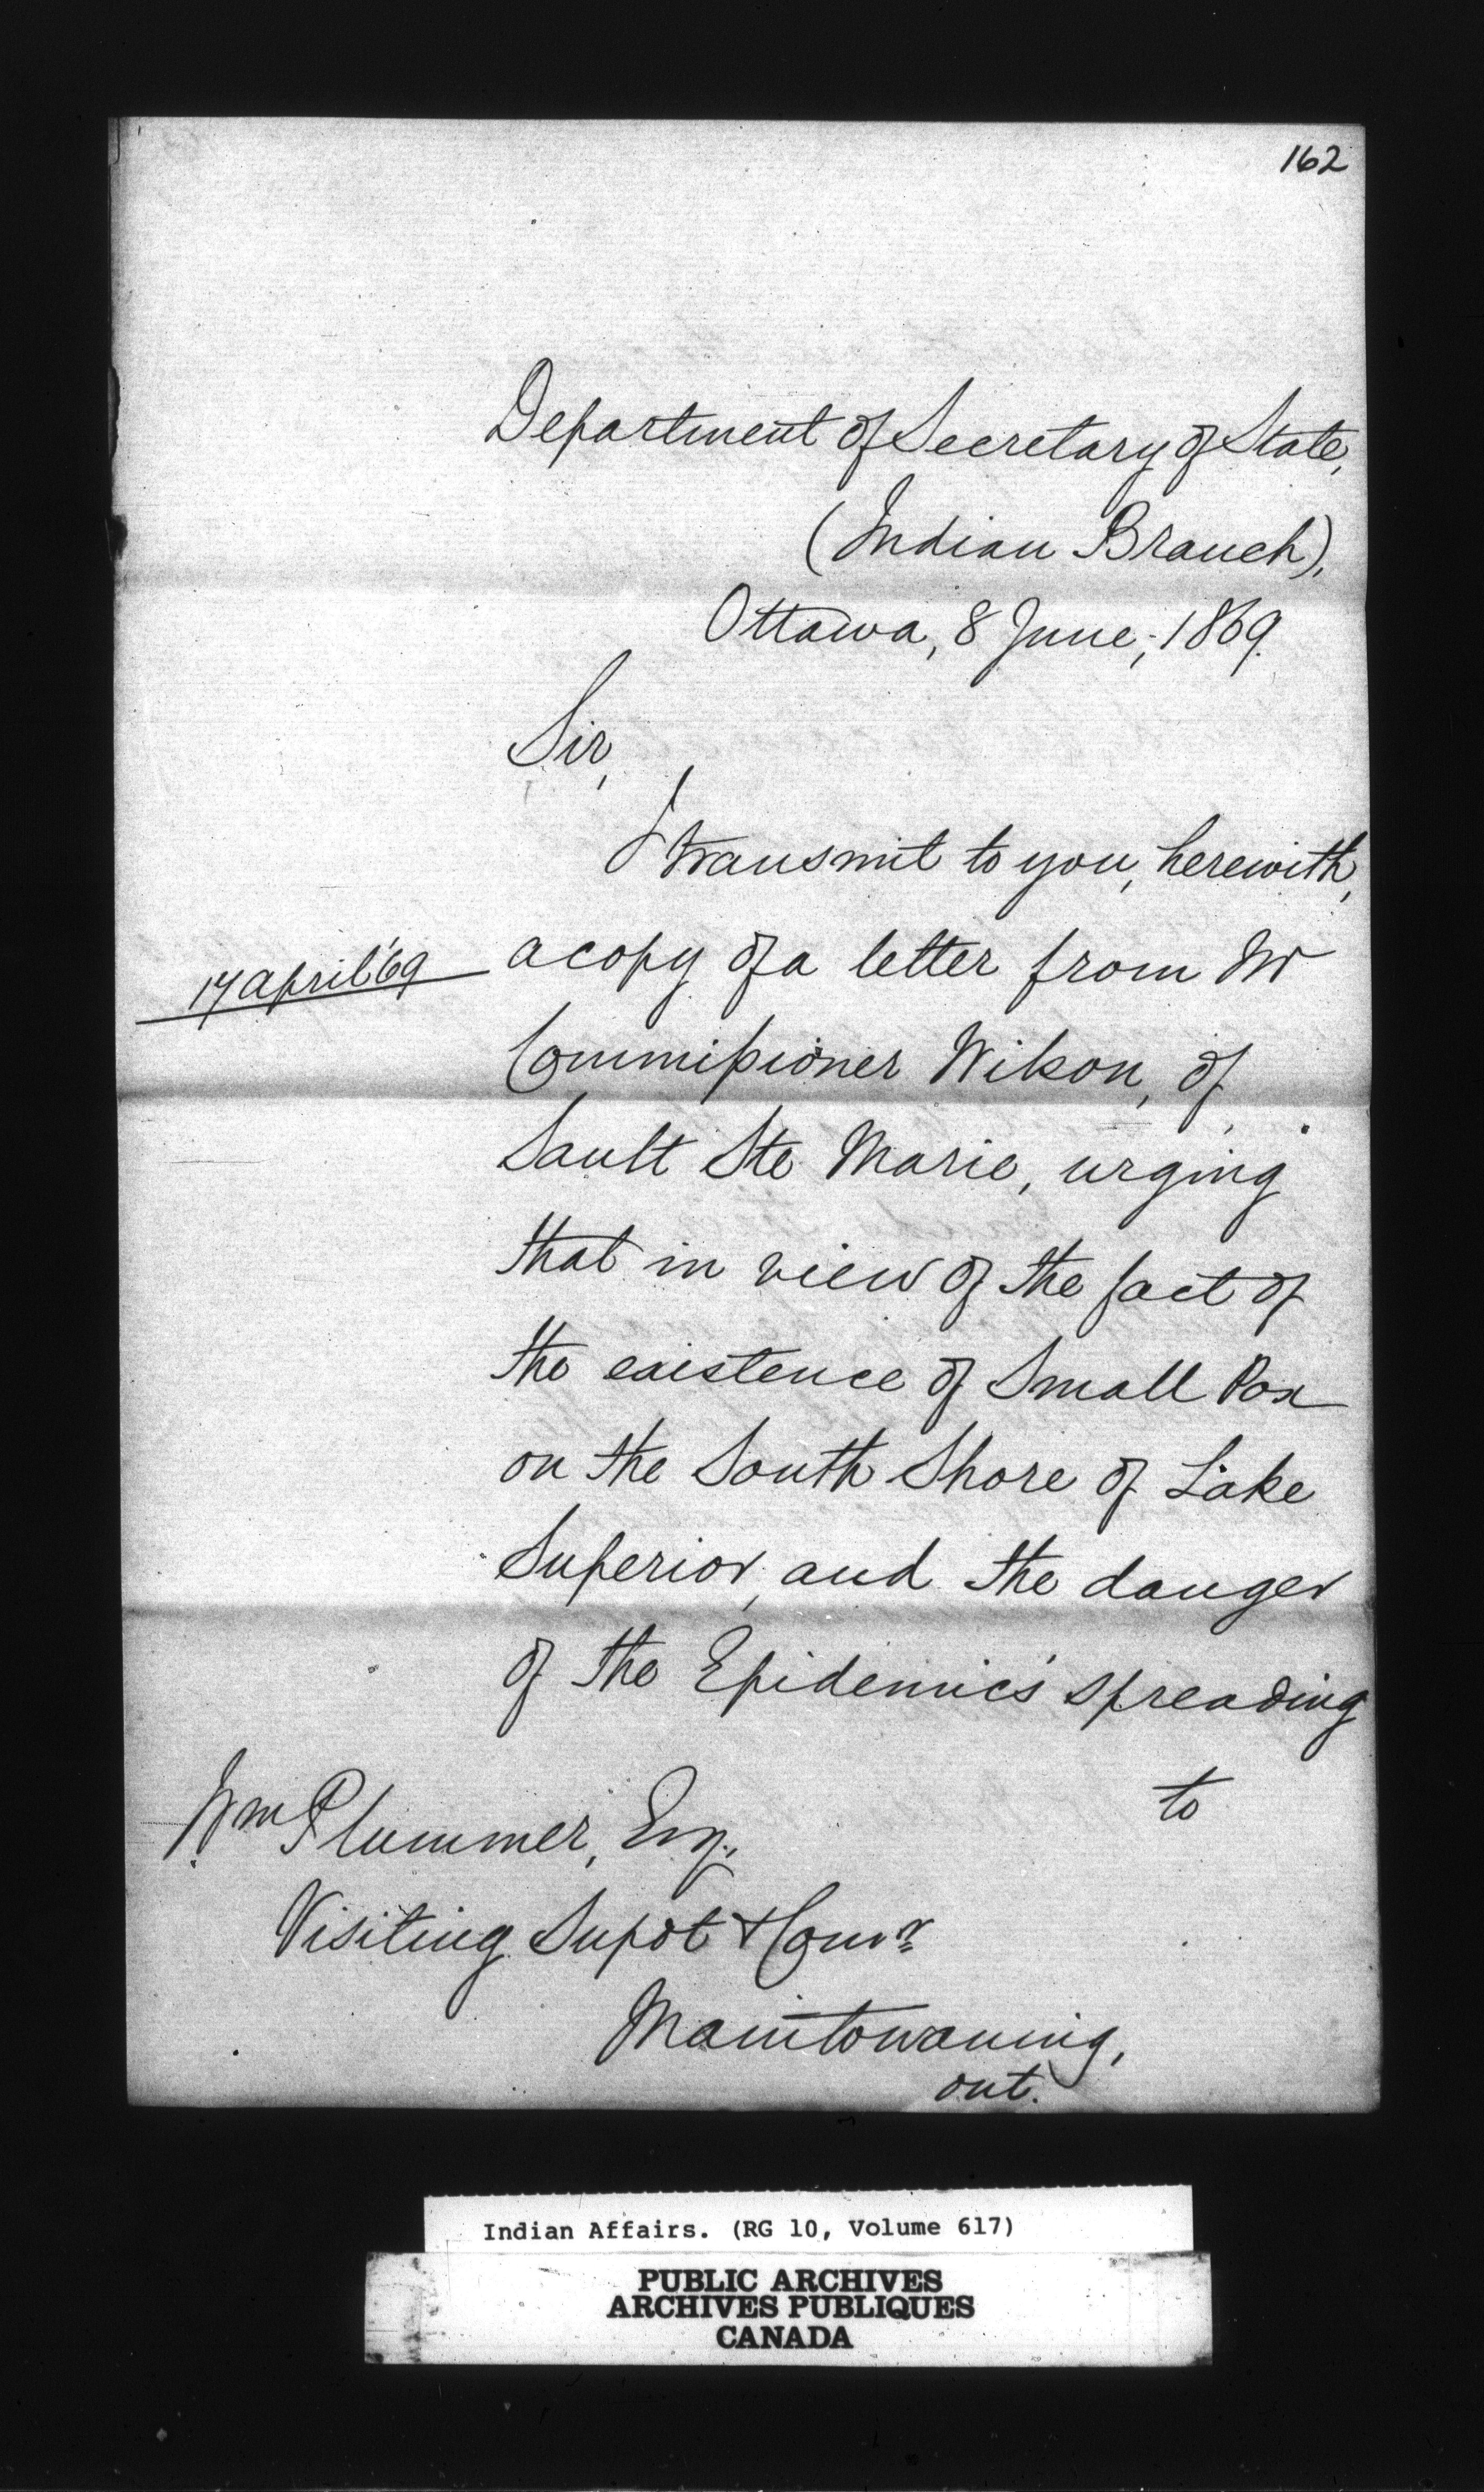 162
Department of Secretary of State,
(Indian Branch),
Ottawa, 8 June, 1869.
Sir,
I transmit to you, herewith,
17 April '69
a copy of a letter from Mr
Commissioner Wilson, of
Sault Ste Marie, urging
that in view of the fact of
the existence of Small Pox
on the South Shore of Lake
Superior, and the danger
of the Epidemic's spreading
to
Wm Plummer, Esq.,
Visiting Supdt & Comr
Manitowaning,
Ont.
Indian Affairs. (RG 10, Volume 617)
PUBLIC ARCHIVES
ARCHIVES PUBLIQUES
CANADA